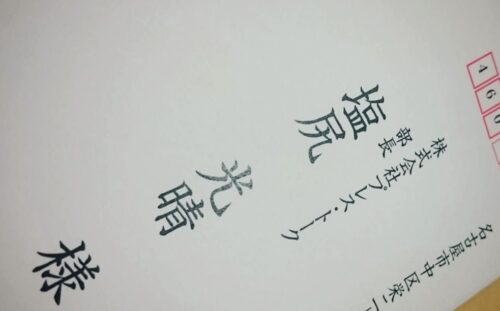 460
名古屋市中区栄二
株式会社プレス・トーク
部長
塩尻 光晴 様